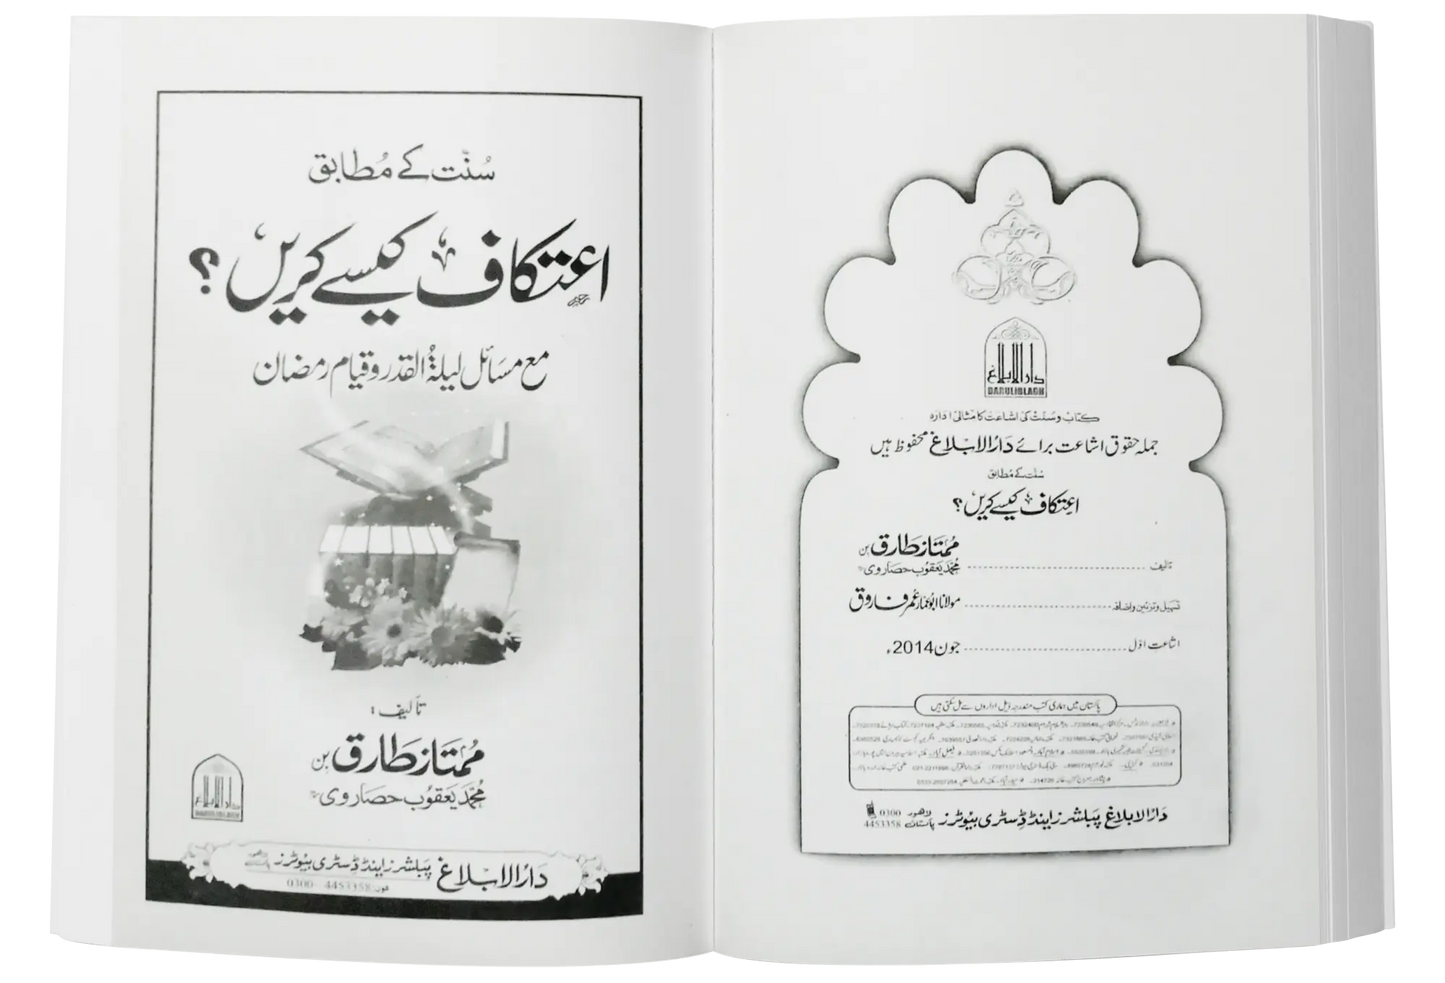 سُنّت کے مُطابق
اعتکاف کیسے کریں؟
مع مسائل لیلۃُ القدر و قیام رمضان
تالیف :
مُمتاز طارق بن
مُحمّد یعقوب حصاروی
دارالابلاغ
DARULIBLAGH
دارالابلاغ پبلشرز اینڈ ڈسٹری بیوٹرز لاہور پاکستان
فون: 4453358 -0300
دارالابلاغ
DARULIBLAGH
کتاب و سُنت کی اشاعت کا مثالی ادارہ
جملہ حقوق اشاعت برائے دارُالابلاغ محفوظ ہیں
سُنّت کے مُطابق
اعتکاف کیسے کریں؟
تالیف ........ مُمتاز طارق بن
مُحمّد یعقوب حصاروی
تسہیل و تزئین و اضافہ ........ مولانا ابُوعمّار عُمر فاروق
اشاعت اوّل ........ جون 2014ء
پاکستان میں ہماری کتب مندرجہ ذیل اداروں سے مل سکتی ہیں
دارُالابلاغ پبلشرز اینڈ ڈسٹری بیوٹرز لاہور پاکستان 0300 4453358